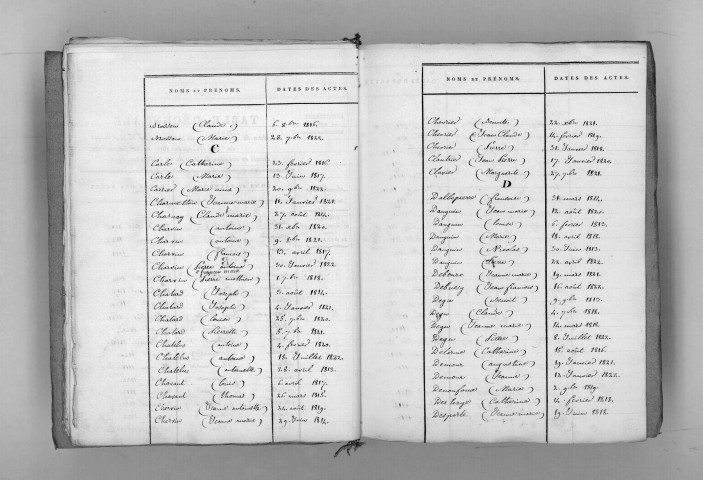 NOMS ET PRÉNOMS. DATES DES ACTES.
Brosson (Claude) 6. 8bre 1816.
Brosson (Marie) 28. 7bre 1822.
C
Carle (Catherine) 23. février 1816.
Carle (Marie) 13. Juin 1817.
Carrier (Marie anne) 20. 9bre 1822.
Charmetton (Jeanne marie) 11. Janvier 1821.
Charnay (Claude marie) 27. août 1814.
Chervin (antoine) 31. xbre 1820.
Chervin (antoine) 9. 8bre 1822.
Charvin (francois) 13. avril 1817.
Charvin (Pierre antoine) 30. Janvier 1822.
Charvin (Pierre mathieu) 1. 7bre 1818.
Chatard (Joseph) 5. août 1814.
Chatard (Joseph) 4. Janvier 1821.
Chatard (Louise) 25. 9bre 1820.
Chatard (Pierrette) 5. 7bre 1821.
Chatelus (antoine) 4. février 1820.
Chatelus (antoine) 18. Juillet 1822.
Chatelus (antoinette) 28. avril 1813.
Chavant (Louis) 6. avril 1817.
Chavant (thomas) 26. mars 1815.
Chervin (Jeanne antoinette) 24. août 1819.
Chervin (Jeanne marie) 29. Juin 1814.
NOMS ET PRÉNOMS. DATES DES ACTES.
Chevrier (Benoite) 22. xbre 1821.
Chevrier (Jean Claude) 14. février 1819.
Chevrier (Pierre) 31. Janvier 1818.
Claudier (Jean Pierre) 17. Janvier 1820.
Clavier (Marguerite) 27. 9bre 1821.
D
Dallepierre (francoise) 31. mars 1814.
Danguin (Jean marie) 12. août 1820.
Danguin (Louise) 6. février 1813.
Danguin (Marie) 18. avril 1818.
Danguin (Nicolas) 30. Juin 1813.
Danguin (Pierre) 22. avril 1822.
Debourg (Jeanne marie) 19. mars 1821.
Debussy (Jean francois) 16. août 1822.
Degu (Benoit) 9. 9bre 1813.
Degu (Claude) 4. 7bre 1818.
Degu (Jeanne marie) 14. mars 1818.
Degu (Pierre) 8. Juillet 1822.
Delarue (Catherine) 15. août 1816.
Demoux (augustine) 19. Janvier 1821.
Demoux (Jeanne) 12. Janvier 1822.
(Marie) 2. 9bre 1819.
(Catherine) 14. février 1818.
Desparte (Jeanne marie) 19. Juin 1812.